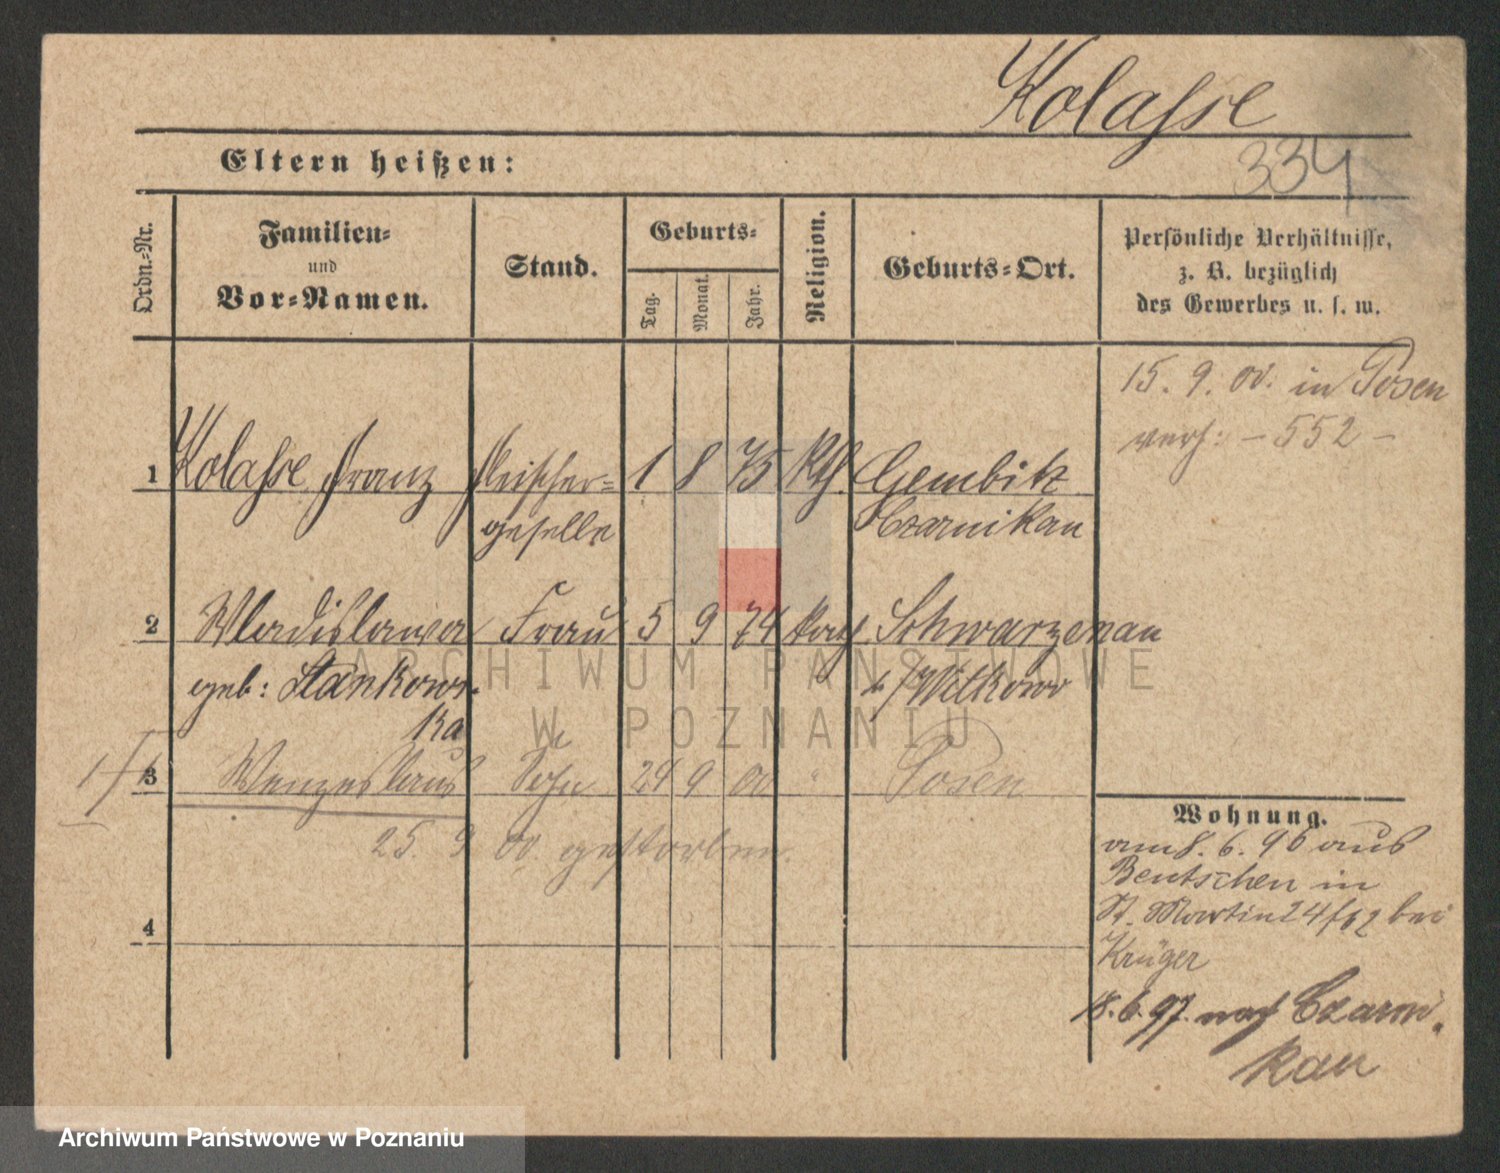 Kolasse
334
Eltern heißen:
Ordn.-Nr.
Familien-
und
Vor-Namen.
Stand.
Geburts-
Tag.
Monat.
Jahr.
Religion.
Geburts-Ort.
Persönliche Verhältnisse,
z. B. bezüglich
des Gewerbes u. s. w.
15. 9. 00. in Posen
verh: - 552 -
1 Kolasse Franz Fleischer- 1 8 75 kth. Gembitz
geselle Czarnikau
2 Wladislawa Frau 5 9 74 kath Schwarzenau
geb: Stankows- /Witkowo
ka
3 Wenzeslaus Sohn 24 9 00 " Posen
25. 9 00 gestorben.
4
Wohnung.
am 8. 6. 96 aus
Bentschen in
St. Martin 24 bei
Krüger
18. 6. 97. nach Czarni-
kau
ARCHIWUM PAŃSTWOWE
W POZNANIU
Archiwum Państwowe w Poznaniu